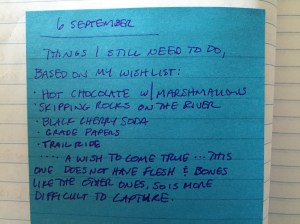 6 SEPTEMBER
THINGS I STILL NEED TO DO,
BASED ON MY WISH LIST:
· HOT CHOCOLATE W/ MARSHMALLOWS
· SKIPPING ROCKS ON THE RIVER
· BLACK CHERRY SODA
· GRADE PAPERS
· TRAIL RIDE
..... A WISH TO COME TRUE ... THIS
ONE DOES NOT HAVE FLESH & BONES
LIKE THE OTHER ONES, SO IS MORE
DIFFICULT TO CAPTURE.